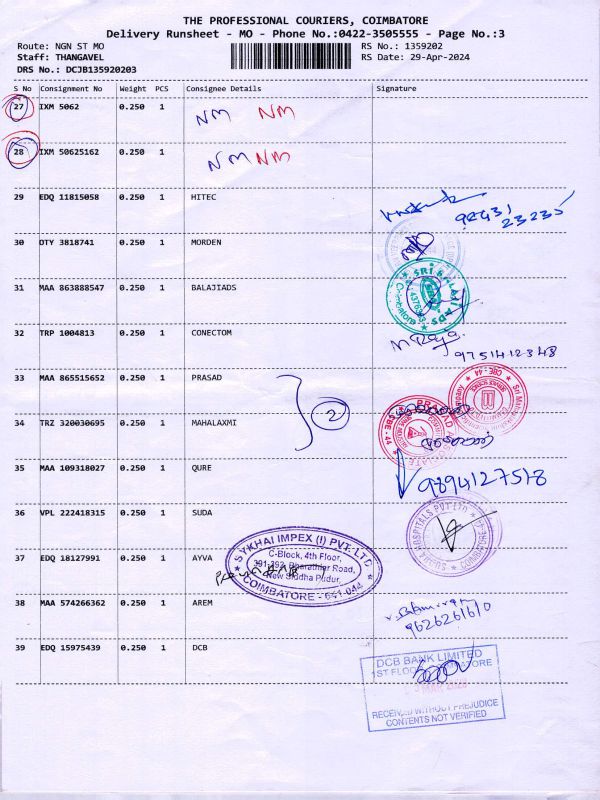 THE PROFESSIONAL COURIERS, COIMBATORE
Delivery Runsheet - MO - Phone No.:0422-3505555 - Page No.:3
Route: NGN ST MO RS No.: 1359202
Staff: THANGAVEL RS Date: 29-Apr-2024
DRS No.: DCJB135920203
S No Consignment No Weight PCS Consignee Details Signature
27 IXM 5062 0.250 1 NM NM
28 IXM 50625162 0.250 1 NM NM
29 EDQ 11815058 0.250 1 HITEC
98431
23235
30 DTY 3818741 0.250 1 MORDEN
31 MAA 863888547 0.250 1 BALAJIADS
SRI BALAJI ADS
Coimbatore
32 TRP 1004813 0.250 1 CONECTOM
9751412348
33 MAA 865515652 0.250 1 PRASAD
CBE - 44
2
34 TRZ 320030695 0.250 1 MAHALAXMI
PRASAD ASSOCIATE
CBE - 44
35 MAA 109318027 0.250 1 QURE
9894127518
36 VPL 222418315 0.250 1 SUDA
HOSPITALS PVT LTD
37 EDQ 18127991 0.250 1 AYVA
SYKHAI IMPEX (I) PVT. LTD
C-Block, 4th Floor,
Bharathiar Road,
New Siddha Pudur,
COIMBATORE - 641 044
38 MAA 574266362 0.250 1 AREM
9626261610
39 EDQ 15975439 0.250 1 DCB
DCB BANK LIMITED
1ST FLOOR
RECEIVED WITHOUT PREJUDICE
CONTENTS NOT VERIFIED